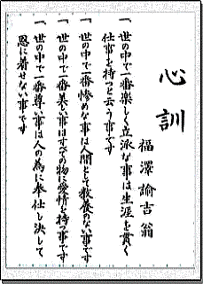 心訓
福澤諭吉翁
一、世の中で一番楽しく立派な事は生涯を貫く
仕事を持つと云う事です
一、世の中で一番惨めな事は人間として教養のない事です
一、世の中で一番美しい事はすべての物に愛情を持つ事です
一、世の中で一番尊い事は人の為に奉仕し決して
恩に着せない事です